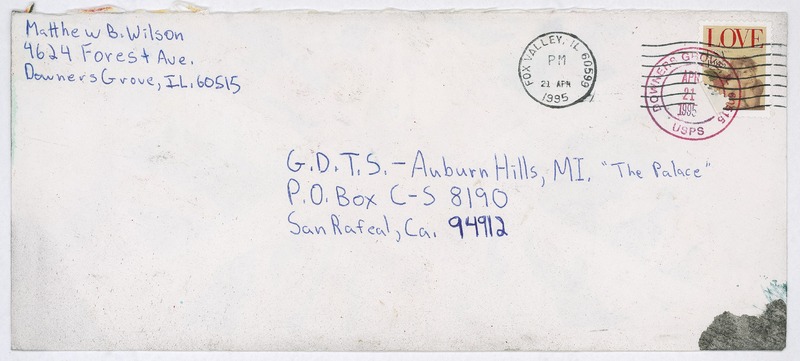 Matthew B. Wilson
4624 Forest Ave.
Downers Grove, IL. 60515
FOX VALLEY, IL 60599
PM
21 APR
1995
LOVE
DOWNERS GROVE
60515
APR
21
1995
USPS
G.D.T.S. - Auburn Hills, MI. "The Palace"
P.O. Box C-S 8190
San Rafeal, Ca. 94912